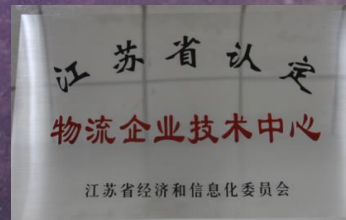 江苏省认定
物流企业技术中心
江苏省经济和信息化委员会